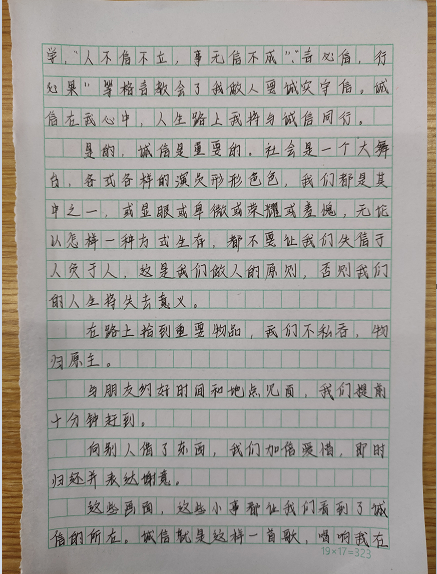 学，“人不信不立，事无信不成”，“言必信，行
必果”等格言教会了我做人要诚实守信。诚
信在我心中，人生路上我将与诚信同行。
是的，诚信是重要的。社会是一个大舞
台，各式各样的演员形形色色，我们都是其
中之一，或显眼或卑微或荣耀或羞愧，无论
以怎样一种方式生存，都不要让我们失信于
人负于人，这是我们做人的原则，否则我们
的人生将失去意义。
在路上拾到重要物品，我们不私吞，物
归原主。
与朋友约好时间和地点见面，我们提前
十分钟赶到。
向别人借了东西，我们加倍爱惜，即时
归还并表达谢意。
这些画面，这些小事都让我们看到了诚
信的所在。诚信就是这样一首歌，唱响我在
19×17=323